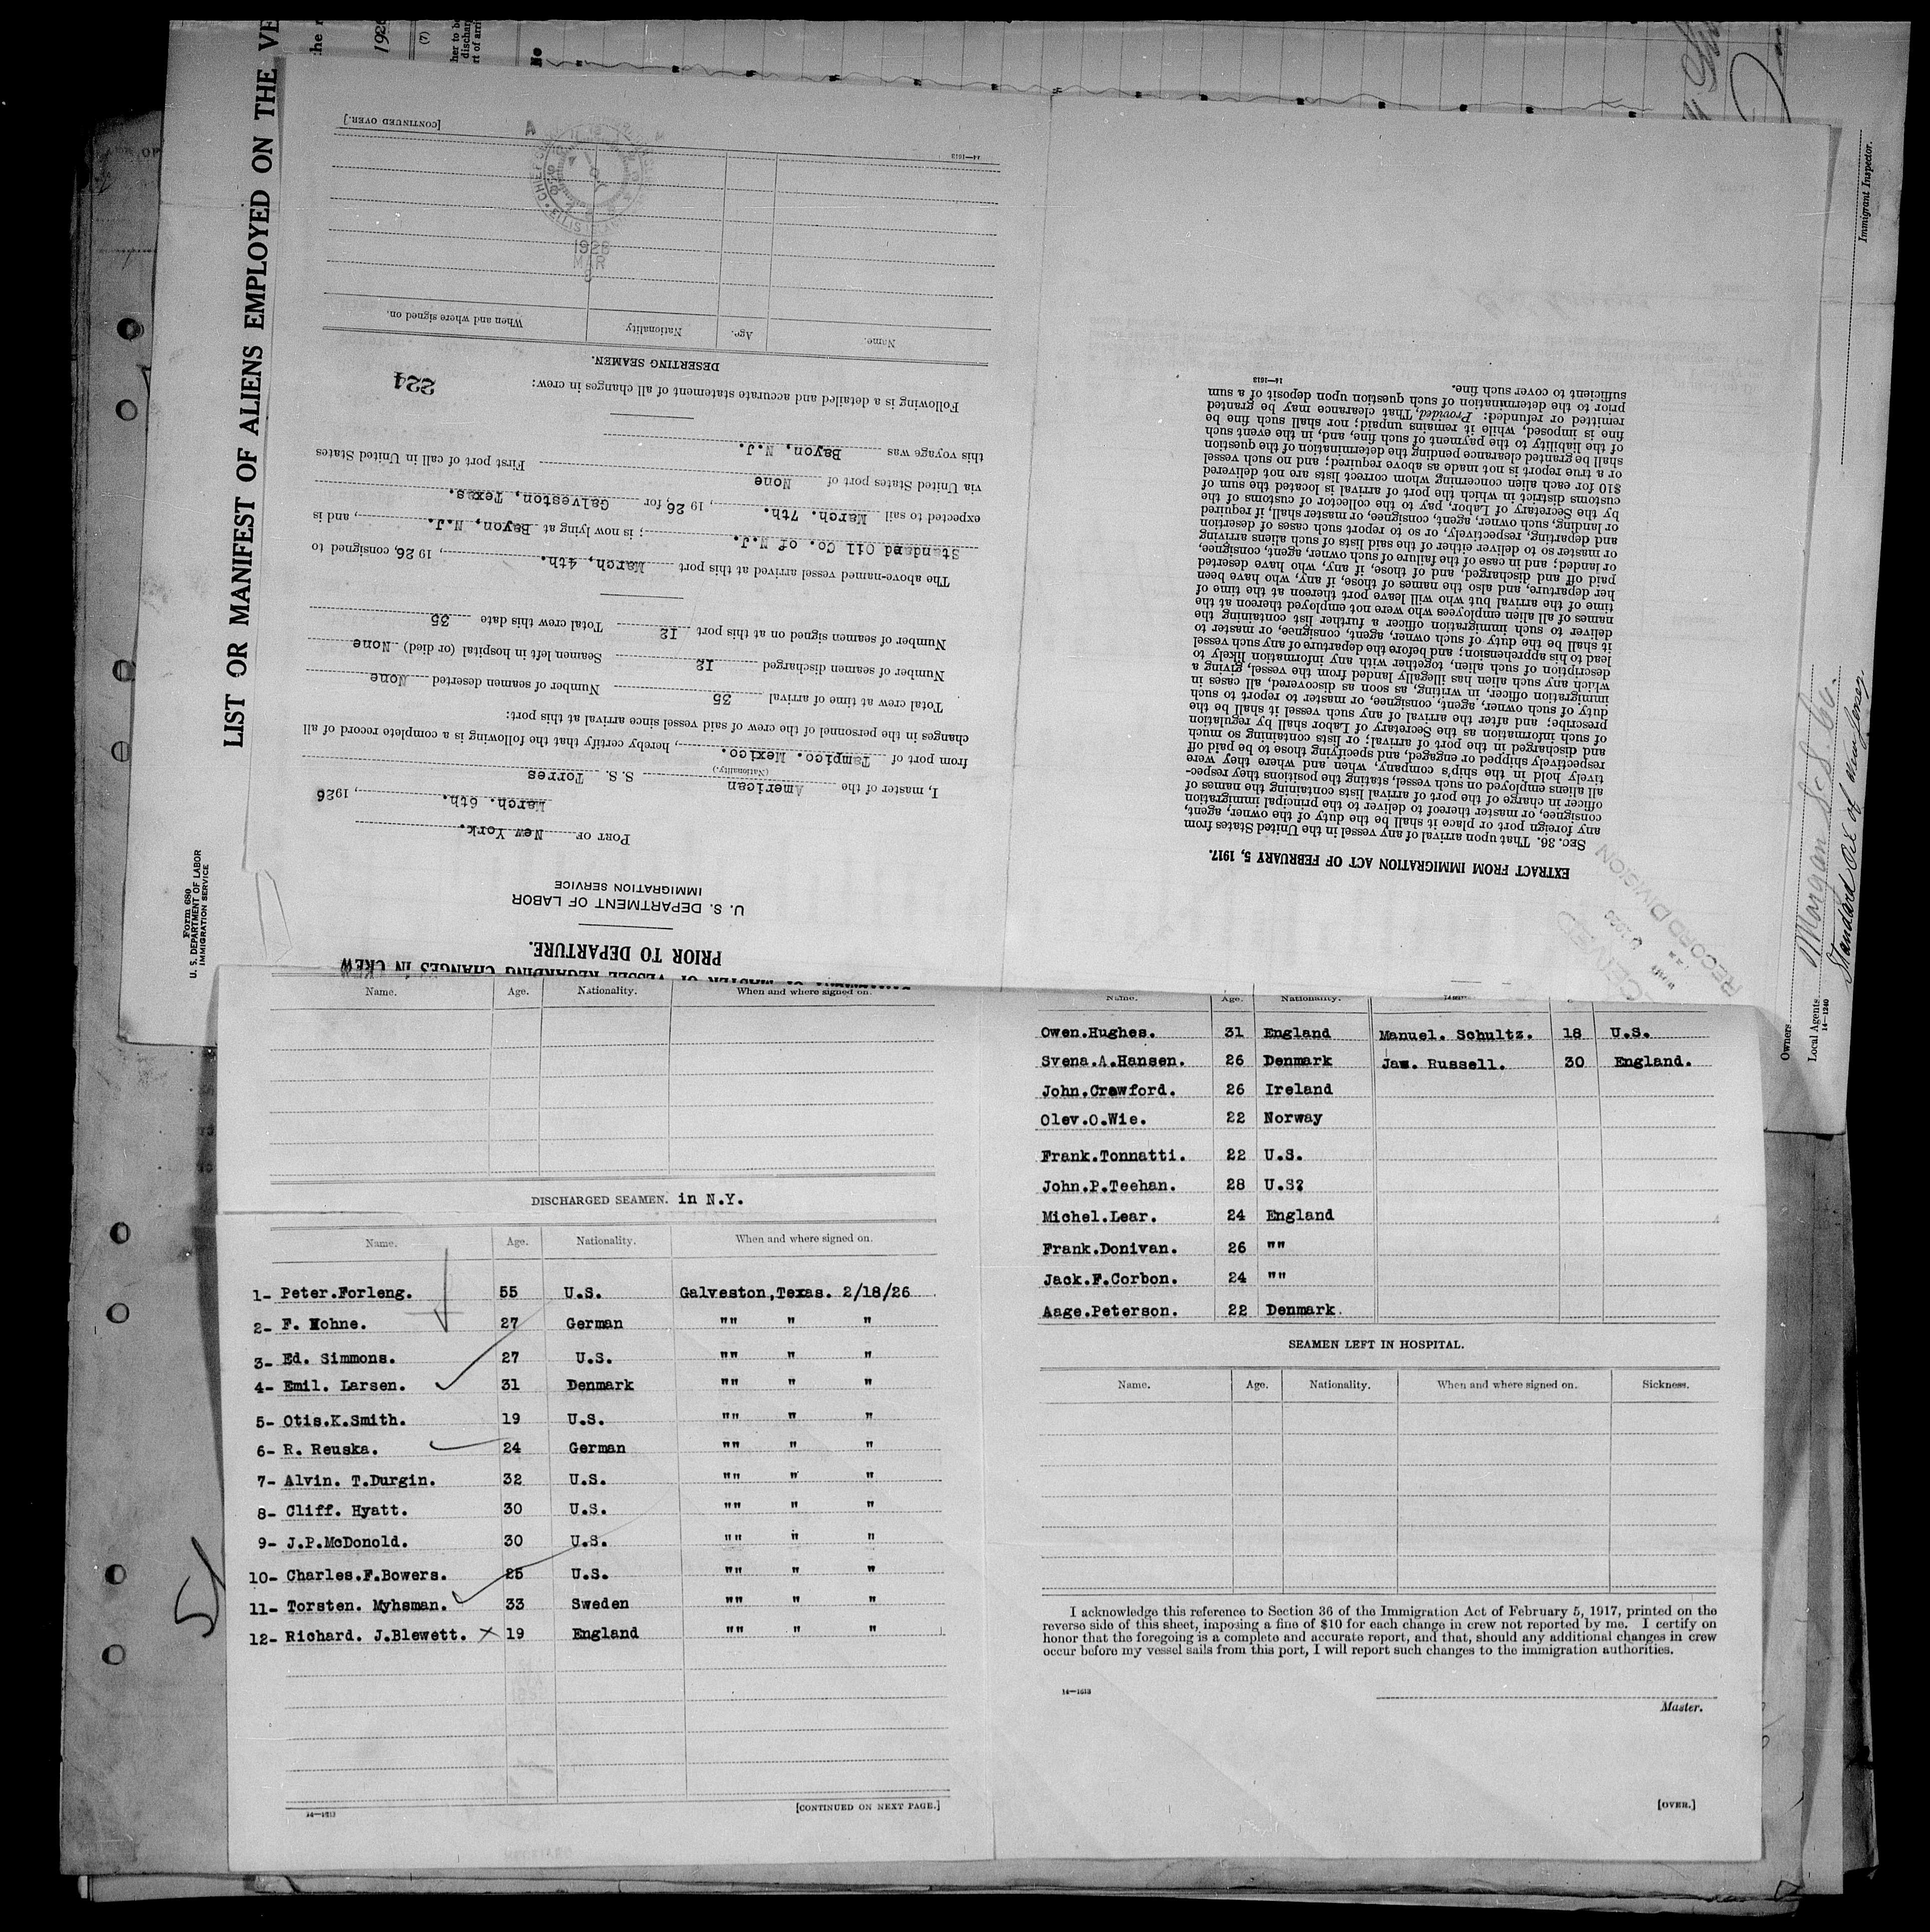 LIST OR MANIFEST OF ALIENS EMPLOYED ON THE VE
Form 680
U. S. DEPARTMENT OF LABOR
IMMIGRATION SERVICE
the
1926
(7)
No
Immigrant Inspector.
Owners Morgan S.S. Co.
Local Agents Standard Oil of New Jersey
14—1240
PRIOR TO DEPARTURE.
U. S. DEPARTMENT OF LABOR
IMMIGRATION SERVICE
PORT OF New York.
March. 6th. , 1926
I, master of the American S.S. Torres
(Nationality.)
from port of Tampico. Mexico. , hereby certify that the following is a complete record of all
changes in the personnel of the crew of said vessel since arrival at this port:
Total crew at time of arrival 35 Number of seamen deserted None
Number of seamen discharged I2 Seamen left in hospital (or died) None
Number of seamen signed on at this port I2 Total crew this date 35
The above-named vessel arrived at this port March, 4th. , 1926, consigned to
Standard Oil Co. of N.J. ; is now lying at Bayon, N.J. , and is
expected to sail March. 7th. , 1926, for Galveston, Texas.
via United States port of None First port of call in United States
this voyage was Bayon, N.J.
Following is a detailed and accurate statement of all changes in crew:
224
DESERTING SEAMEN.
Name. Age. Nationality When and where signed on.
1926
MAR
14—1613 [CONTINUED OVER.]
EXTRACT FROM IMMIGRATION ACT OF FEBRUARY 5, 1917.
SEC. 36. That upon arrival of any vessel in the United States from
any foreign port or place it shall be the duty of the owner, agent,
consignee, or master thereof to deliver to the principal immigration
officer in charge of the port of arrival lists containing the names of
all aliens employed on such vessel, stating the positions they respec-
tively hold in the ship's company, when and where they were
respectively shipped or engaged, and specifying those to be paid off
and discharged in the port of arrival; or lists containing so much
of such information as the Secretary of Labor shall by regulation
prescribe; and after the arrival of any such vessel it shall be the
duty of such owner, agent, consignee, or master to report to such
immigration officer, in writing, as soon as discovered, all cases in
which any such alien has illegally landed from the vessel, giving a
description of such alien, together with any information likely to
lead to his apprehension; and before the departure of any such vessel
it shall be the duty of such owner, agent, consignee, or master to
deliver to such immigration officer a further list containing the
names of all alien employees who were not employed thereon at the
time of the arrival but who will leave port thereon at the time of
her departure, and also the names of those, if any, who have been
paid off and discharged, and of those, if any, who have deserted
or landed; and in case of the failure of such owner, agent, consignee,
or master so to deliver either of the said lists of such aliens arriving
and departing, respectively, or so to report such cases of desertion
or landing, such owner, agent, consignee, or master shall, if required
by the Secretary of Labor, pay to the collector of customs of the
customs district in which the port of arrival is located the sum of
$10 for each alien concerning whom correct lists are not delivered
or a true report is not made as above required; and no such vessel
shall be granted clearance pending the determination of the question
of the liability to the payment of such fine, and, in the event such
fine is imposed, while it remains unpaid; nor shall such fine be
remitted or refunded: Provided, That clearance may be granted
prior to the determination of such question upon deposit of a sum
sufficient to cover such fine.
14—1613
RECORD DIVISION
Name. Age. Nationality. When and where signed on.
DISCHARGED SEAMEN. in N.Y.
Name. Age. Nationality. When and where signed on.
1- Peter.Forleng. 55 U.S. Galveston,Texas. 2/18/26
2- F. Hohne. 27 German "" " "
3- Ed. Simmons. 27 U.S. "" " "
4- Emil. Larsen. 31 Denmark "" " "
5- Otis.K.Smith. 19 U.S. "" " "
6- R. Reuska. 24 German "" " "
7- Alvin. T.Durgin. 32 U.S. "" " "
8- Cliff. Hyatt. 30 U.S. "" " "
9- J.P.McDonold. 30 U.S. "" " "
10- Charles.F.Bowers. 25 U.S. "" " "
11- Torsten. Myhsman. 33 Sweden "" " "
12- Richard. J.Blewett. X 19 England "" " "
14—1613 [CONTINUED ON NEXT PAGE.]
Name. Age. Nationality. Name.
Owen.Hughes. 31 England Manuel. Schultz. 18 U.S.
Svena.A.Hansen. 26 Denmark Jas. Russell. 30 England.
John.Crawford. 26 Ireland
Olev.O.Wie. 22 Norway
Frank.Tonnatti. 22 U.S.
John.P.Teehan. 28 U.S?
Michel.Lear. 24 England
Frank.Donivan. 26 ""
Jack.F.Corbon. 24 ""
Aage.Peterson. 22 Denmark.
SEAMEN LEFT IN HOSPITAL.
Name. Age. Nationality. When and where signed on. Sickness.
I acknowledge this reference to Section 36 of the Immigration Act of February 5, 1917, printed on the
reverse side of this sheet, imposing a fine of $10 for each change in crew not reported by me. I certify on
honor that the foregoing is a complete and accurate report, and that, should any additional changes in crew
occur before my vessel sails from this port, I will report such changes to the immigration authorities.
14—1613
Master.
[OVER.]